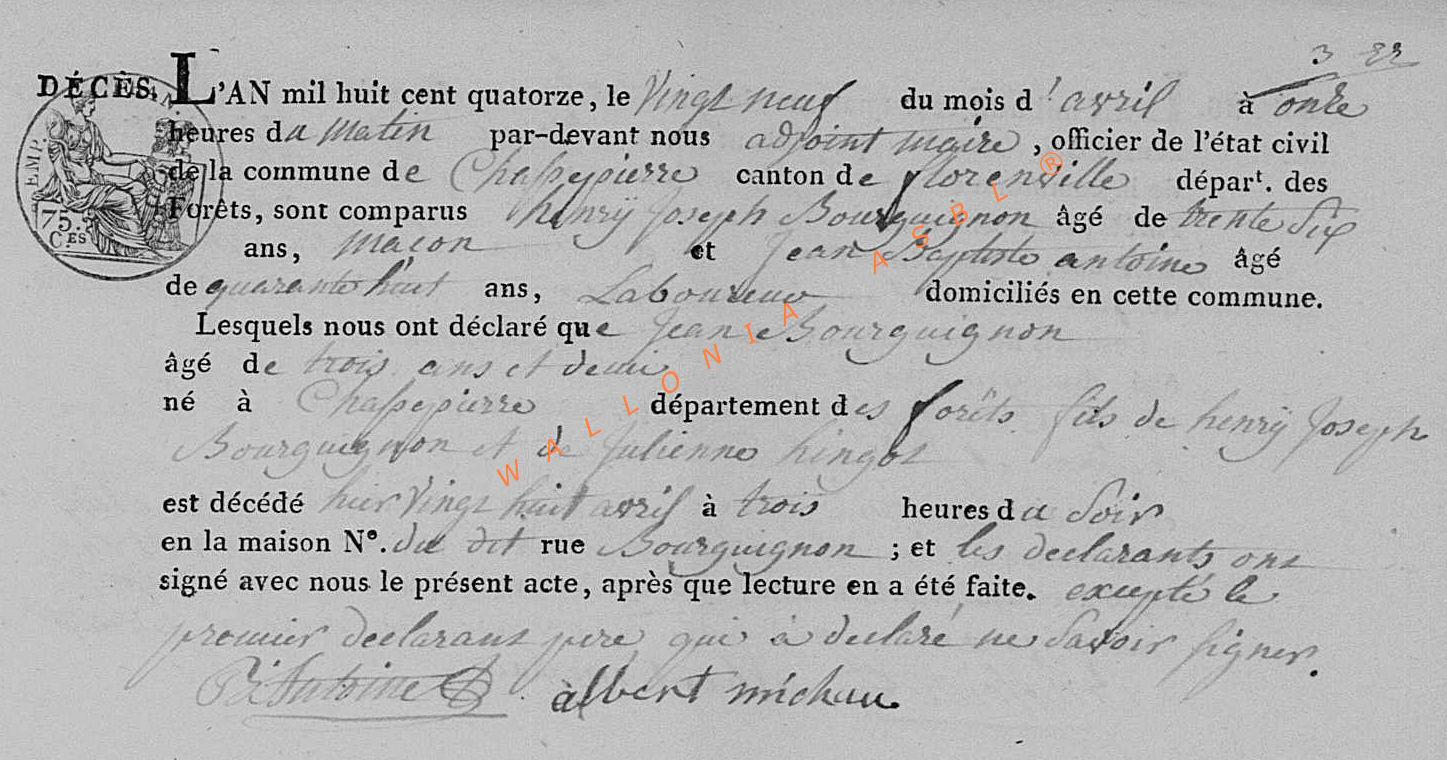 3 22
DÉCÈS. L'AN mil huit cent quatorze, le Vingt neuf du mois d'avril à onze
heures du matin par-devant nous adjoint maire, officier de l'état civil
de la commune de Chassepierre canton de florenville départ. des
Forêts, sont comparus henrÿ joseph Bourguignon âgé de trente Six
ans, maçon et jean Baptiste antoine âgé
de quarante huit ans, Laboureur domiciliés en cette commune.
Lesquels nous ont déclaré que jean Bourguignon
âgé de trois ans et demi
né à Chassepierre département des forêts fils de henrÿ joseph
Bourguignon et de julienne hingot
est décédé hier Vingt huit avril à trois heures du Soir
en la maison N°. du dit rue Bourguignon ; et les declarants ont
signé avec nous le présent acte, après que lecture en a été faite. excepté le
premier declarant pere qui à declaré ne Savoir signer.
Antoine albert michau.
EMP.
75.
CES
WALLONIA ASBL ®